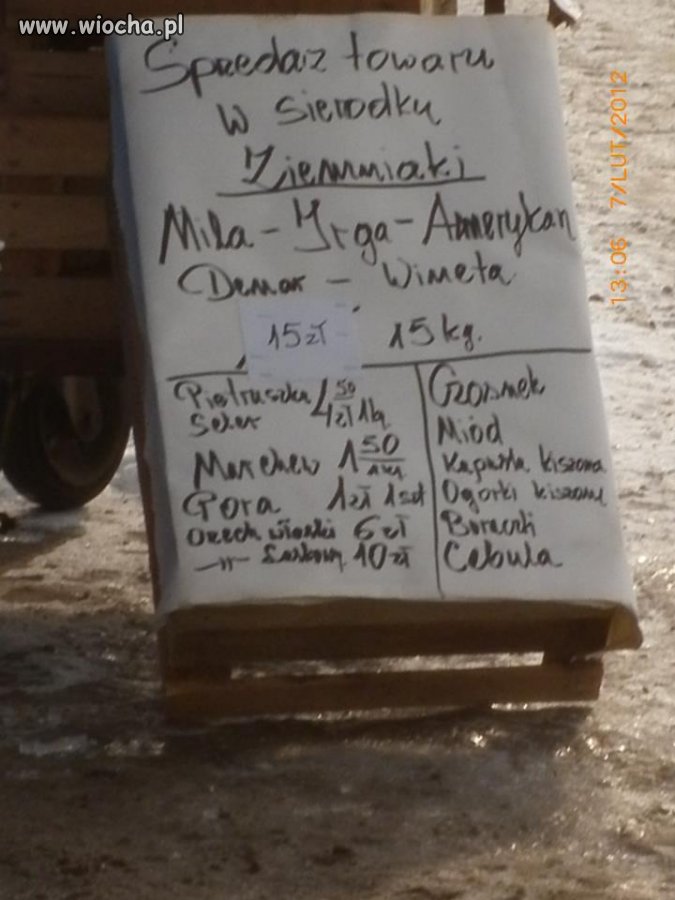 www.wiocha.pl
Sprzedaż towaru
w sierodku
Ziemniaki
Mila - Irga - Amerykan
Demar - Wineta
15 zł 15 kg.
Pietruszka 4 50
Seler 4zł 1kg
Marchew 1 50 1kg
Pora 1zł 1szt
Orzech włoski 6 zł
-"- Laskowy 10 zł
Czosnek
Miód
Kapusta kiszona
Ogórki kiszone
Boraczki
Cebula
13:06 7/LUT/2012